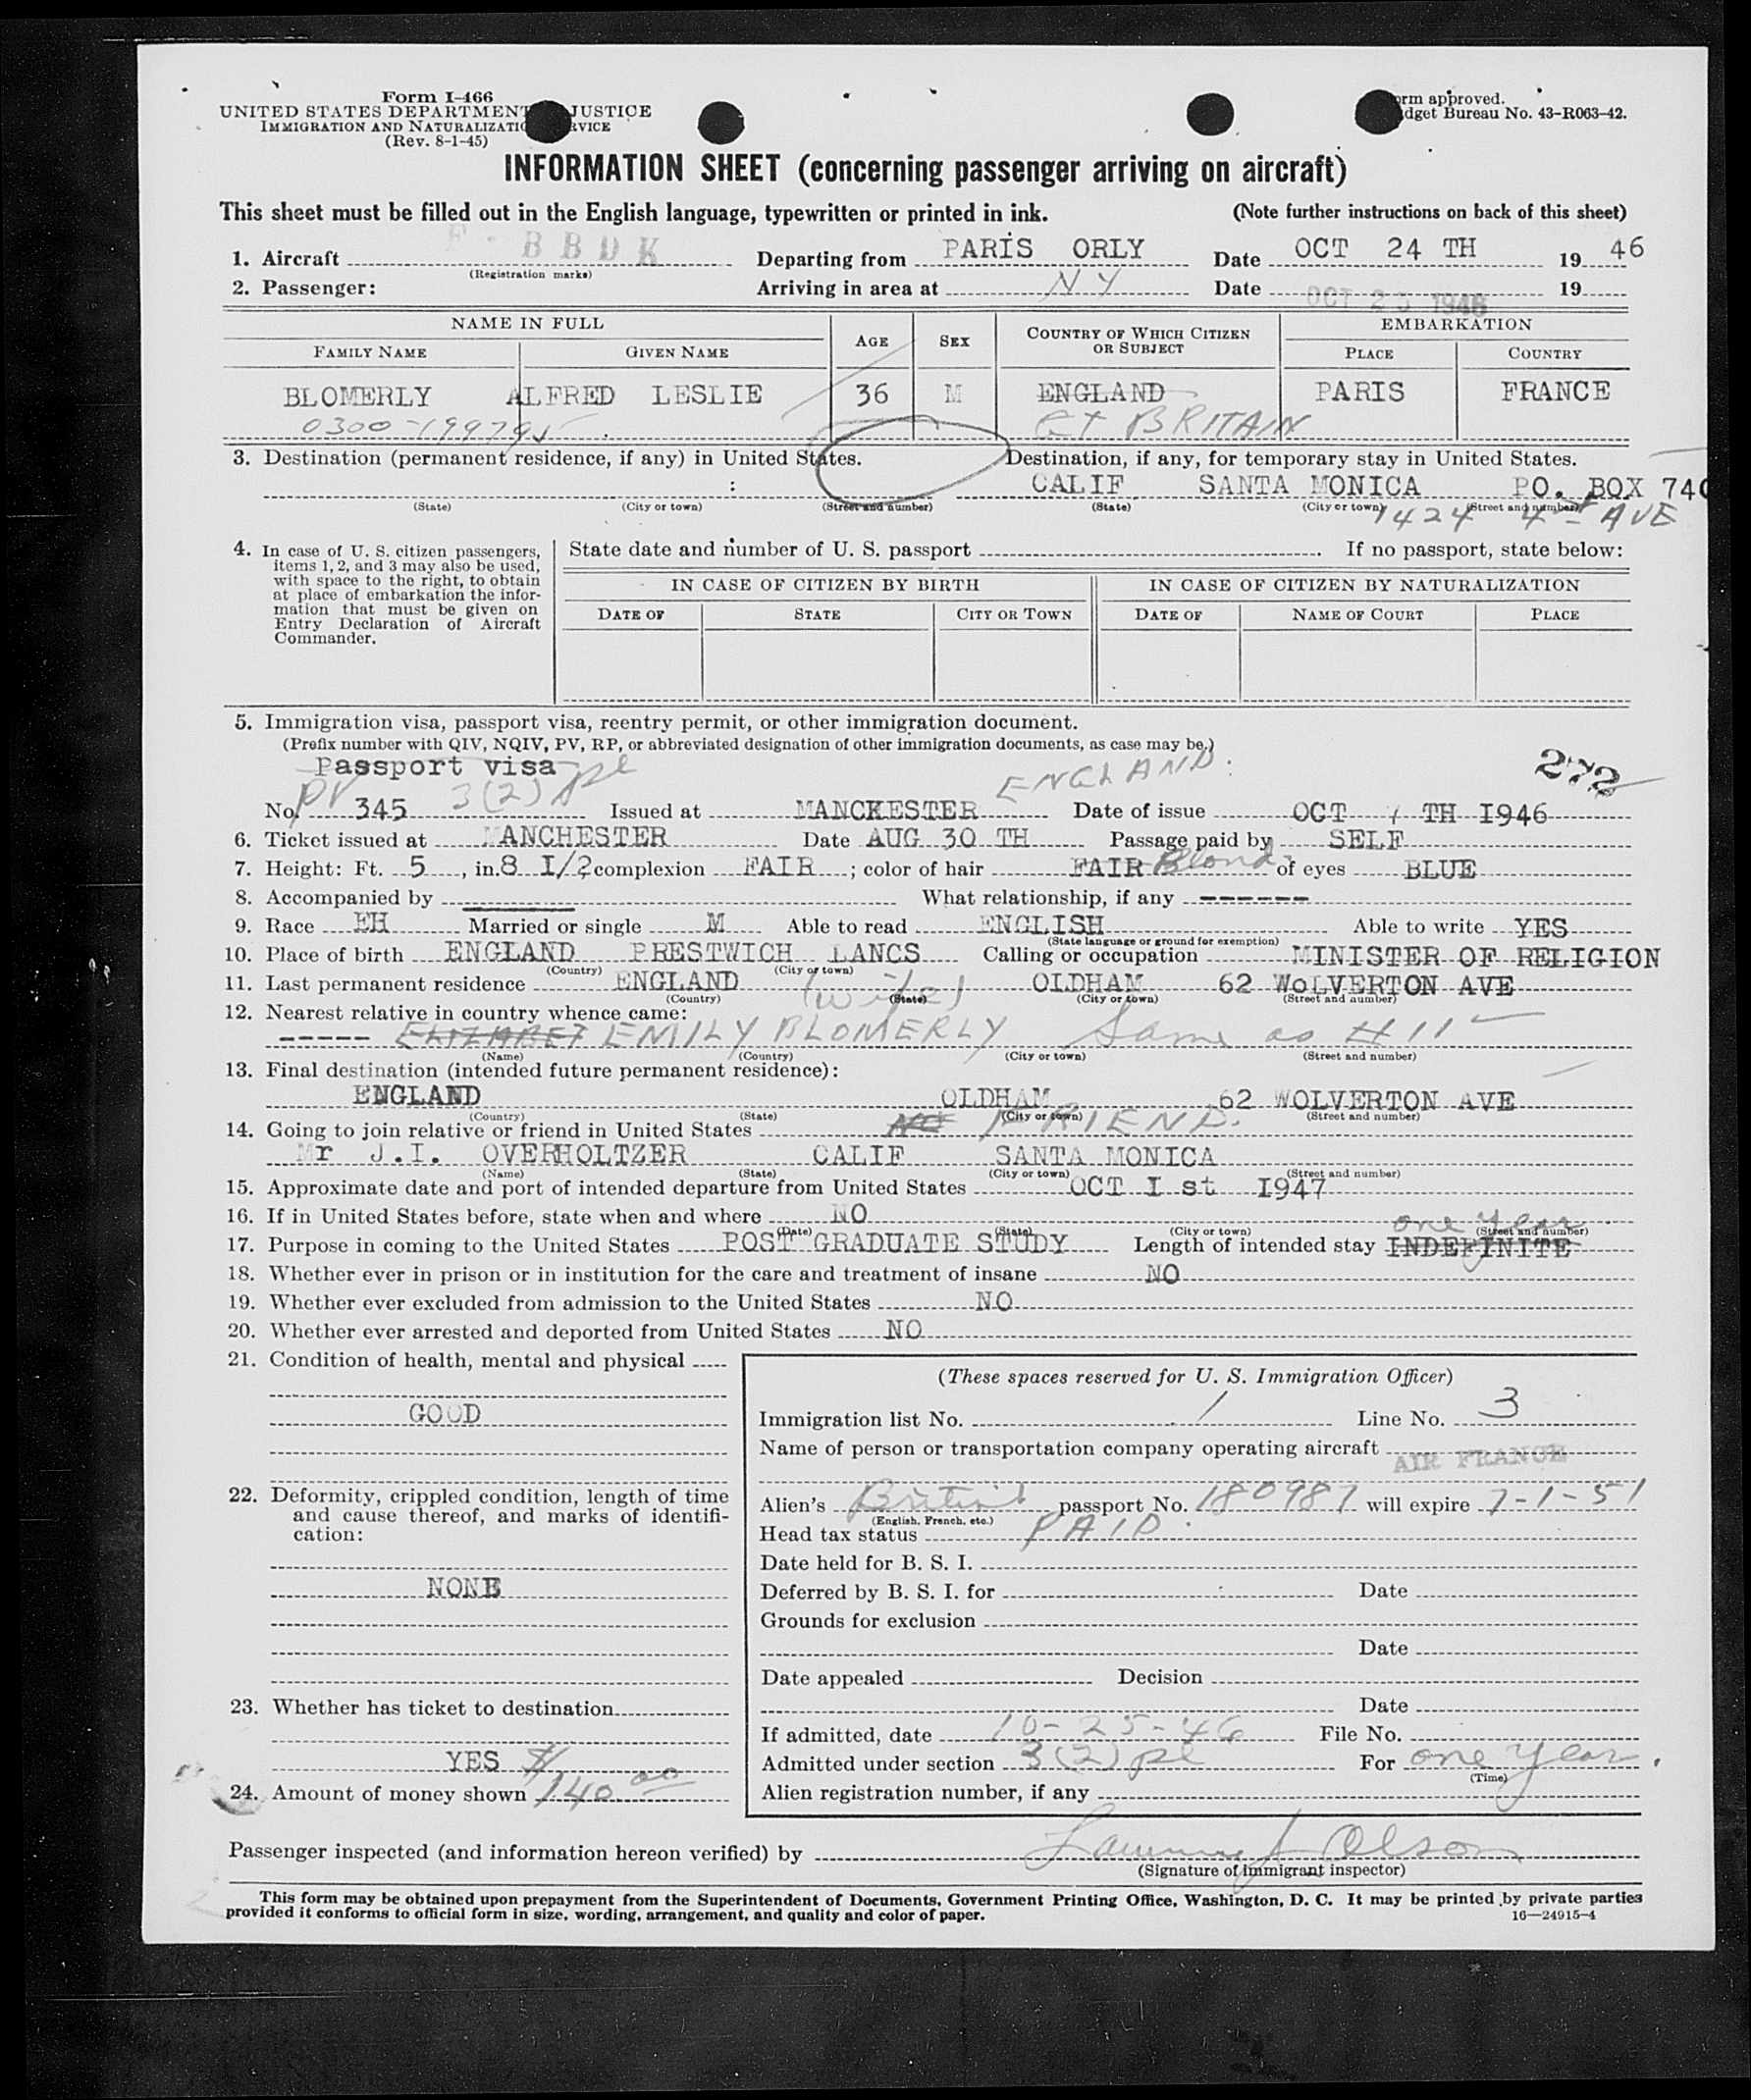 Form I-466
UNITED STATES DEPARTMENT JUSTICE
IMMIGRATION AND NATURALIZATION SERVICE
(Rev. 8-1-45)
Form approved.
Budget Bureau No. 43-R063-42.
INFORMATION SHEET (concerning passenger arriving on aircraft)
This sheet must be filled out in the English language, typewritten or printed in ink. (Note further instructions on back of this sheet)
1. Aircraft F-BBDK Departing from PARIS ORLY Date OCT 24 TH 1946
(Registration marks)
2. Passenger: Arriving in area at NY Date OCT 25 1946 19
NAME IN FULL AGE SEX COUNTRY OF WHICH CITIZEN OR SUBJECT EMBARKATION
FAMILY NAME GIVEN NAME PLACE COUNTRY
BLOMERLY ALFRED LESLIE 36 M ENGLAND PARIS FRANCE
0300-199791 GT BRITAIN
3. Destination (permanent residence, if any) in United States. Destination, if any, for temporary stay in United States.
CALIF SANTA MONICA PO. BOX 740
(State) (City or town) (Street and number) (State) (City or town) (Street and number)
1424 4th AVE
4. In case of U. S. citizen passengers, items 1, 2, and 3 may also be used, with space to the right, to obtain at place of embarkation the information that must be given on Entry Declaration of Aircraft Commander.
State date and number of U. S. passport If no passport, state below:
IN CASE OF CITIZEN BY BIRTH IN CASE OF CITIZEN BY NATURALIZATION
DATE OF STATE CITY OR TOWN DATE OF NAME OF COURT PLACE
5. Immigration visa, passport visa, reentry permit, or other immigration document.
(Prefix number with QIV, NQIV, PV, RP, or abbreviated designation of other immigration documents, as case may be.)
Passport visa ENGLAND. 272
No. PV 345 3(2) pl Issued at MANCKESTER Date of issue OCT TH I946
6. Ticket issued at MANCHESTER Date AUG 30 TH Passage paid by SELF
7. Height: Ft. 5, in. 8 I/2 complexion FAIR; color of hair FAIR Blond of eyes BLUE
8. Accompanied by ------ What relationship, if any ------
9. Race EH Married or single M Able to read ENGLISH Able to write YES
(State language or ground for exemption)
10. Place of birth ENGLAND PRESTWICH LANCS Calling or occupation MINISTER OF RELIGION
(Country) (City or town)
11. Last permanent residence ENGLAND OLDHAM 62 WOLVERTON AVE
(Country) (State) (City or town) (Street and number)
12. Nearest relative in country whence came: (wife)
----- ELIZABET EMILY BLOMERLY Same as #11
(Name) (Country) (City or town) (Street and number)
13. Final destination (intended future permanent residence):
ENGLAND OLDHAM 62 WOLVERTON AVE
(Country) (State) (City or town) (Street and number)
14. Going to join relative or friend in United States NO FRIEND.
Mr J.I. OVERHOLTZER CALIF SANTA MONICA
(Name) (State) (City or town) (Street and number)
15. Approximate date and port of intended departure from United States OCT I st I947
16. If in United States before, state when and where NO
(Date) (State) (City or town) (Street and number)
one year
17. Purpose in coming to the United States POST GRADUATE STUDY Length of intended stay INDEFINITE
18. Whether ever in prison or in institution for the care and treatment of insane NO
19. Whether ever excluded from admission to the United States NO
20. Whether ever arrested and deported from United States NO
21. Condition of health, mental and physical
GOOD
22. Deformity, crippled condition, length of time and cause thereof, and marks of identification:
NONE
23. Whether has ticket to destination
YES
24. Amount of money shown $140.00
(These spaces reserved for U. S. Immigration Officer)
Immigration list No. 1 Line No. 3
Name of person or transportation company operating aircraft AIR FRANCE
Alien's British passport No. 180987 will expire 7-1-51
(English, French, etc.)
Head tax status PAID
Date held for B. S. I.
Deferred by B. S. I. for Date
Grounds for exclusion
Date
Date appealed Decision
Date
If admitted, date 10-25-46 File No.
Admitted under section 3(2) pl For one year.
(Time)
Alien registration number, if any
Passenger inspected (and information hereon verified) by Olson
(Signature of immigrant inspector)
This form may be obtained upon prepayment from the Superintendent of Documents, Government Printing Office, Washington, D. C. It may be printed by private parties
provided it conforms to official form in size, wording, arrangement, and quality and color of paper. 16—24915-4